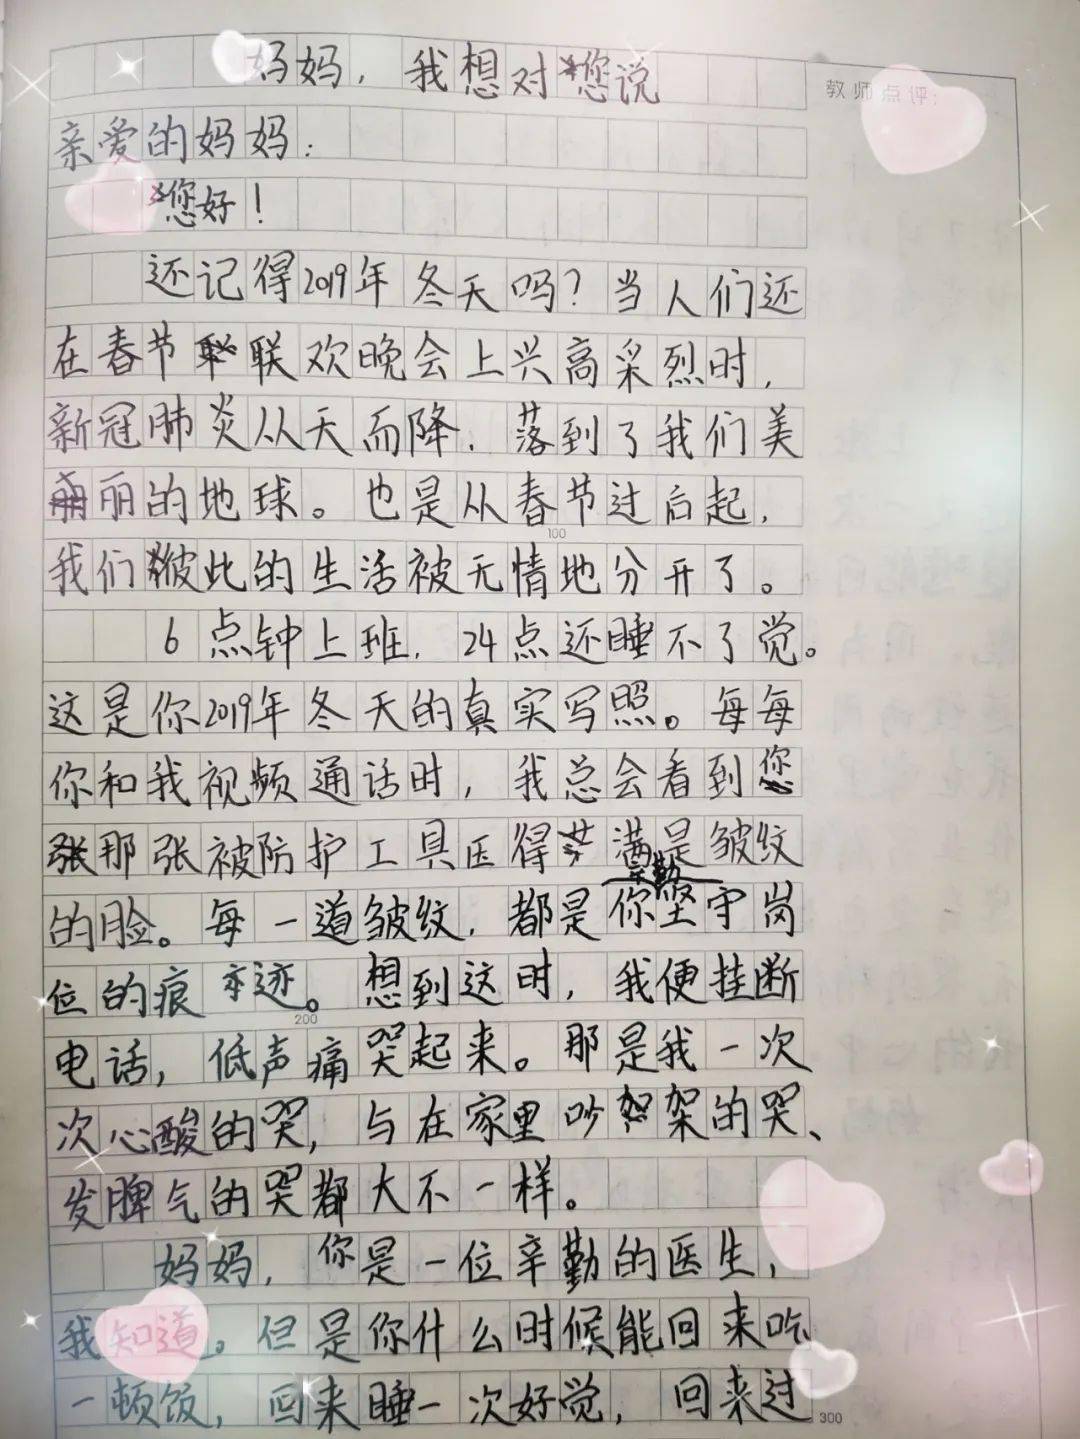 妈妈，我想对您说
教师点评：
亲爱的妈妈：
您好！
还记得2019年冬天吗？当人们还
在春节联欢晚会上兴高采烈时，
新冠肺炎从天而降，落到了我们美
丽的地球。也是从春节过后起，
100
我们彼此的生活被无情地分开了。
6点钟上班，24点还睡不了觉。
这是你2019年冬天的真实写照。每每
你和我视频通话时，我总会看到您
那张被防护工具压得满是皱纹
的脸。每一道皱纹，都是你辛勤坚守岗
位的痕迹。想到这时，我便挂断
200
电话，低声痛哭起来。那是我一次
次心酸的哭，与在家里吵架的哭、
发脾气的哭都大不一样。
妈妈，你是一位辛勤的医生，
我知道。但是你什么时候能回来吃
一顿饭，回来睡一次好觉，回来过
300